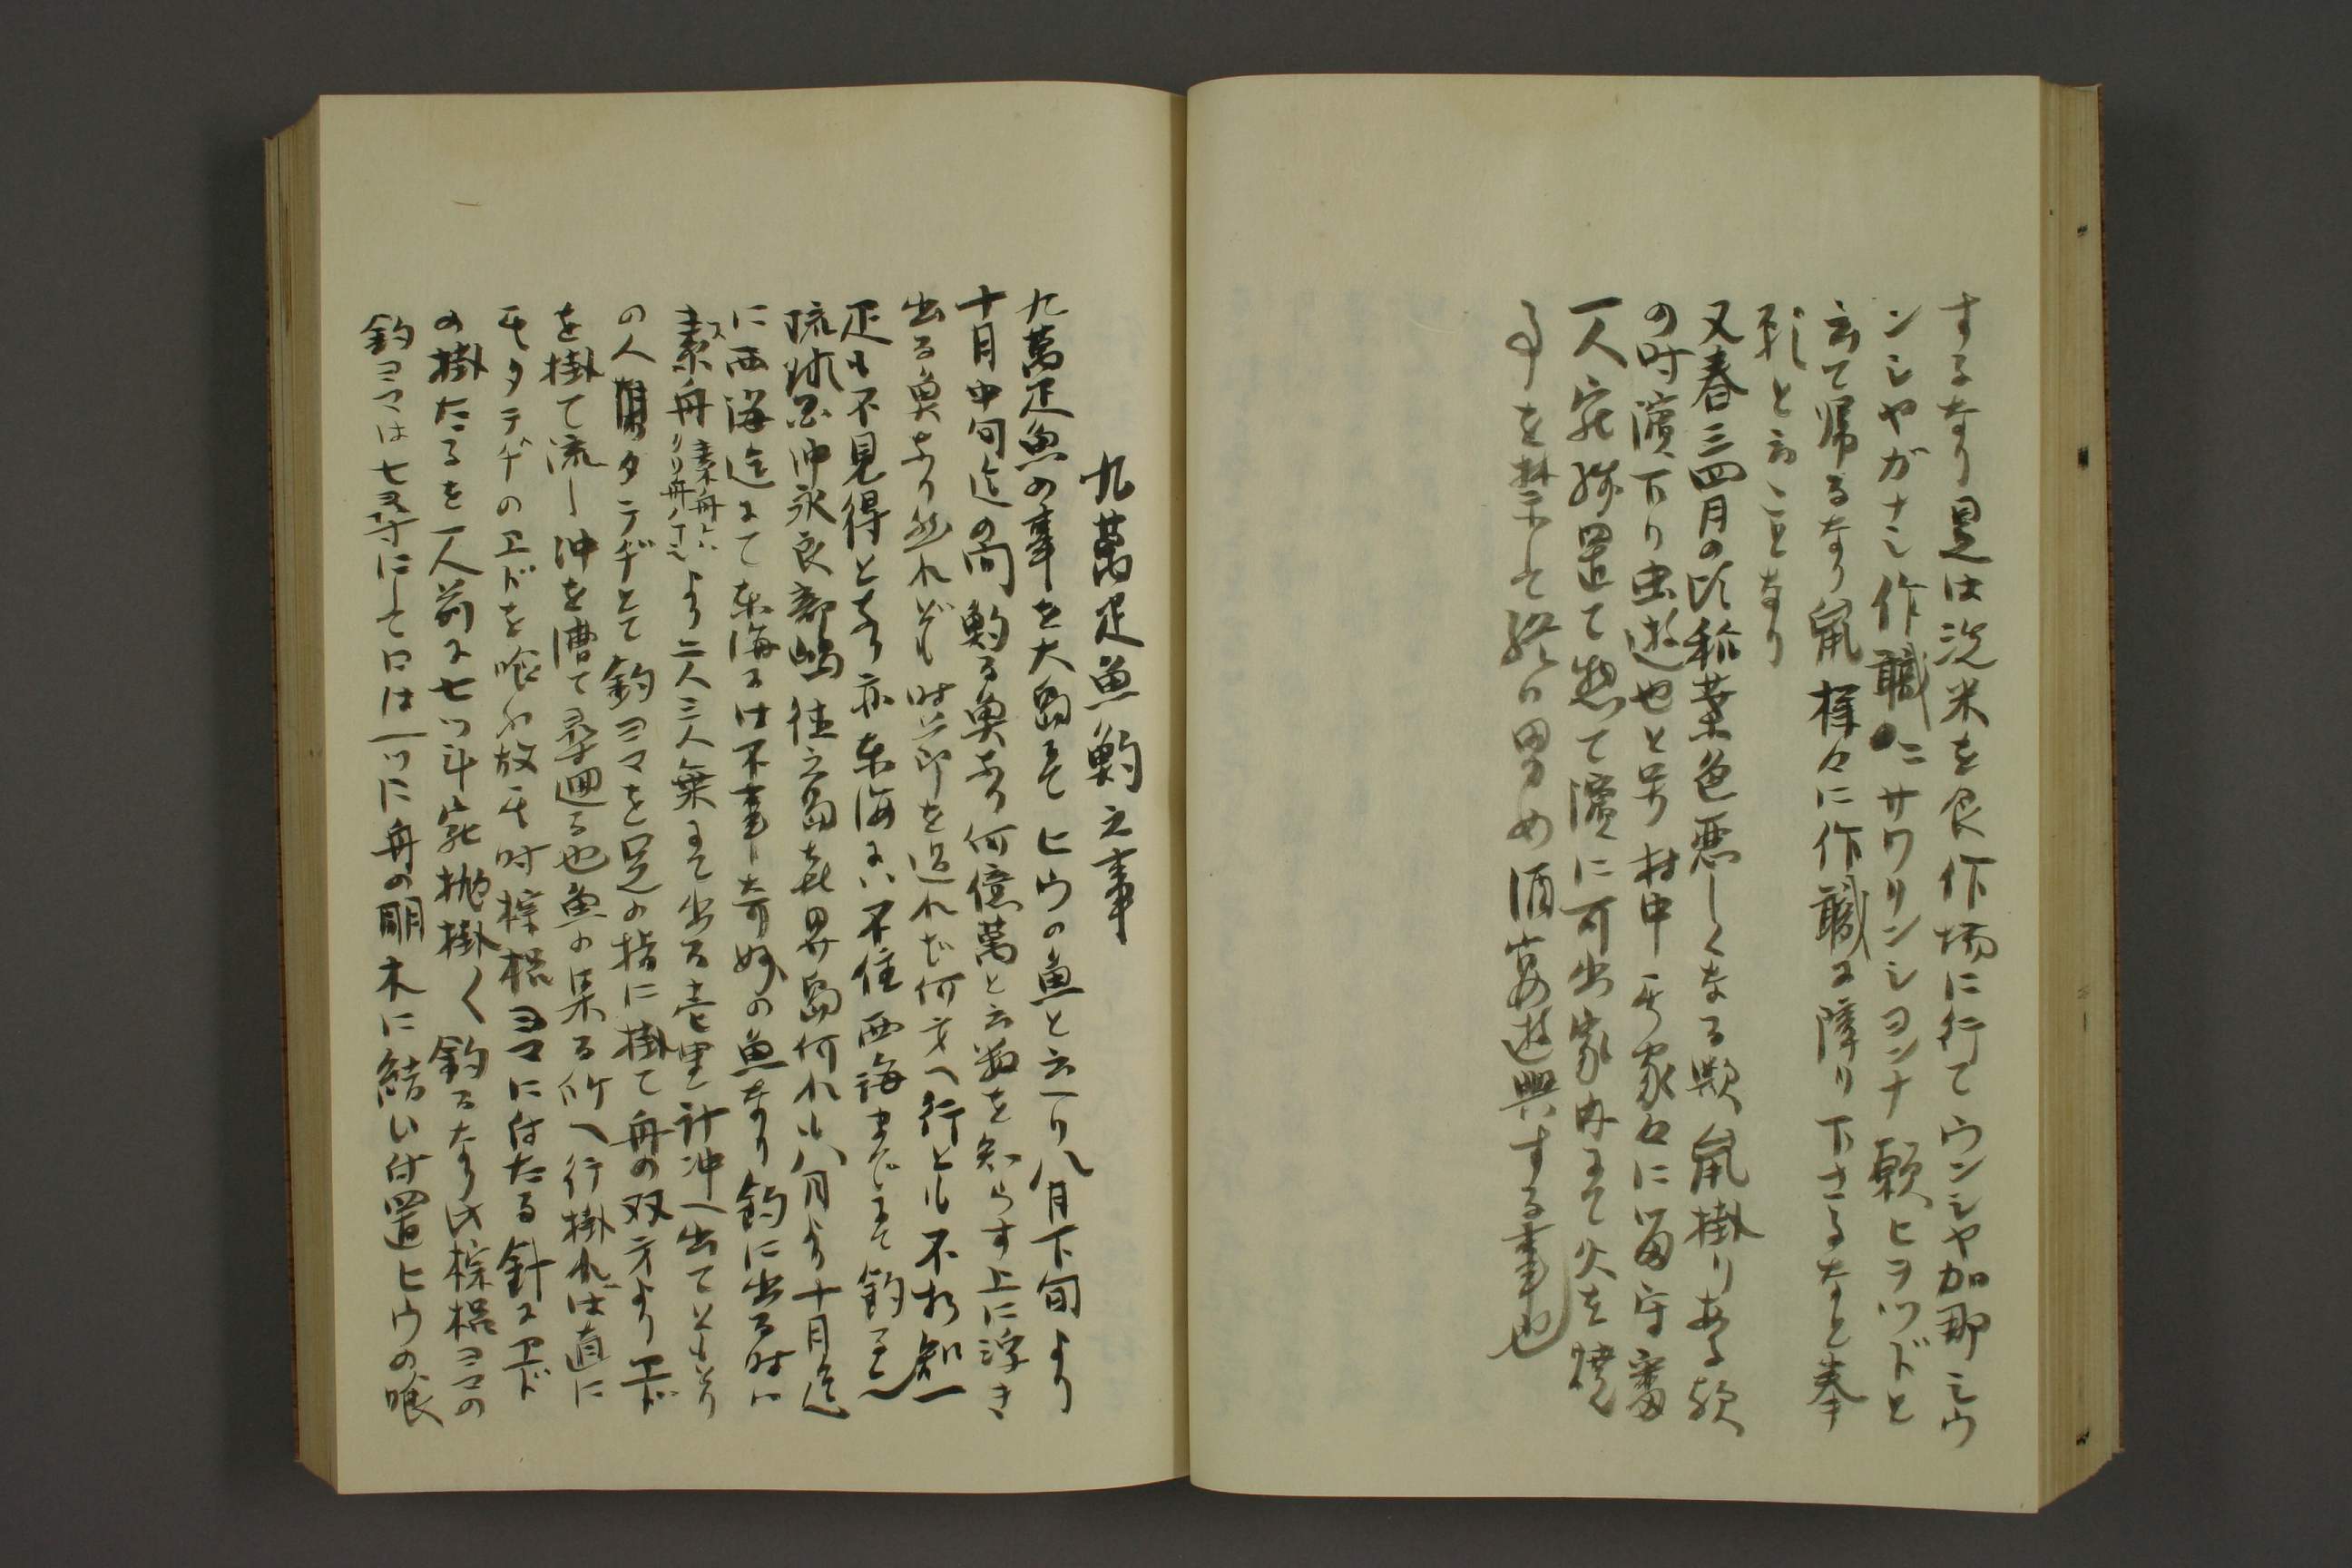 するなり是は洗米を食作場に行てウンシヤ加那シウ
ンシヤガナシ作職ニサワリンシヨンナ願ヒヨツドと
云て帰るなり鼠様々に作職に障り下さるなと奉
願と云ことなり
又春三四月の頃稲葉色悪しくなる歟鼠掛りある歟
の時濱下り虫遊也と号村中其家々に留守番
一人宛残置て惣て濱に可出家内にて火を焼
事を禁して終日男女酒宴遊興する事也
九萬疋魚釣之事
九萬疋魚の事を大島にてヒウの魚と云一り八月下旬より
十月中旬迄の間釣る魚なり何億萬と云数を知らす上に浮き
出る魚なり然れども時節を過れば何方へ行とも不相知一
疋も不見得となり亦東海には不住西海までにて釣る也
琉球国沖永良部嶋徳之島喜界島何れも八月より十月迄
に西海迄にて東海には不来奇妙の魚なり釣に出る時は
素舟素舟とはクリ舟ノ丁也より二人三人乗にて出る壱里計沖へ出てともより
の人タテギとて釣ヨマを足の指に掛て舟の双方よりヱド
を掛て流し沖を漕て尋廻る也魚の集る所へ行掛れば直に
其タテギのヱドを喰ふ故其時棕梠ヨマに付たる針にヱド
の掛たるを一人前に七ツ斗宛抛掛く釣るなり此棕梠ヨマの
釣ヨマは七尋にして口は一ツに舟の胴木に結ひ付置ヒウの喰